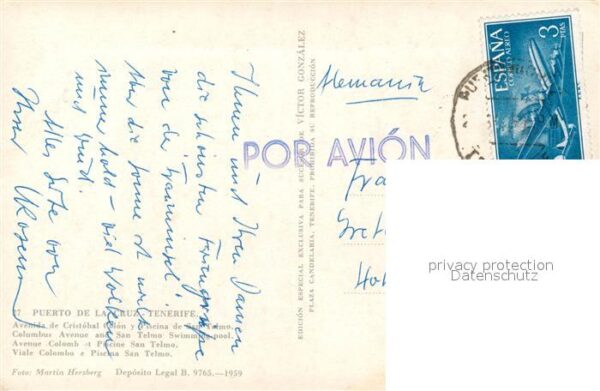 Ihnen und Ihren Damen
die schönsten Feriengrüße
von der "Trauminsel".
Nur die Sonne ist nicht
immer hold – viel Wolken
und Wind.
Alles Gute von
Ihrer
Alemania
POR AVIÓN
ESPAÑA
CORREO AEREO
3
PTAS
Fra
Gret
privacy protection
Datenschutz
EDICIÓN ESPECIAL EXCLUSIVA PARA SUCESOR DE VÍCTOR GONZÁLEZ
PLAZA CANDELARIA, TENERIFE. PROHIBIDA SU REPRODUCCIÓN
27 PUERTO DE LA CRUZ. TENERIFE.
Avenida de Cristóbal Colón y Piscina de San Telmo.
Columbus Avenue and San Telmo Swimming pool.
Avenue Colomb et Piscine San Telmo.
Viale Colombo e Piscina San Telmo.
Foto: Martin Herzberg Depósito Legal B. 9765.—1959